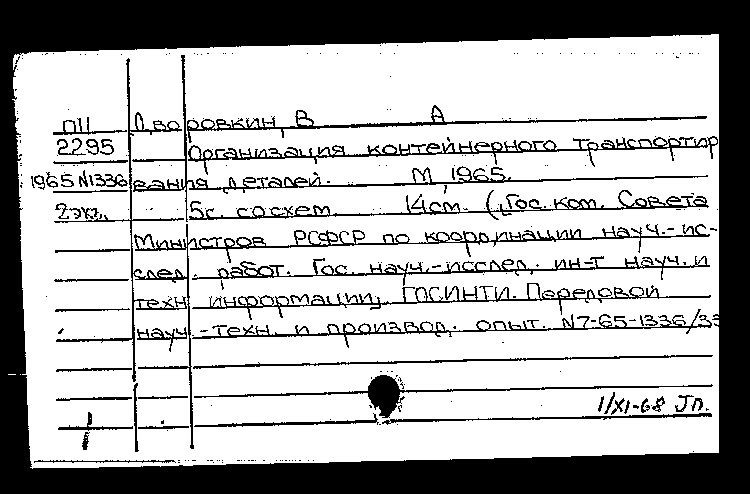 П11 Дворовкин, В А
2295 Организация контейнерного транспортир
1965 N1336 вания деталей. М, 1965.
2экз. 5с. со схем. 14см. (Гос. ком. Совета
Министров РСФСР по координации науч.-ис-
след. работ. Гос. науч.-исслед. ин-т науч. и
техн информации, ГОСИНТИ. Передовой
науч.-техн. и производ. опыт. N7-65-1336/33
1/XI-68 Јп.